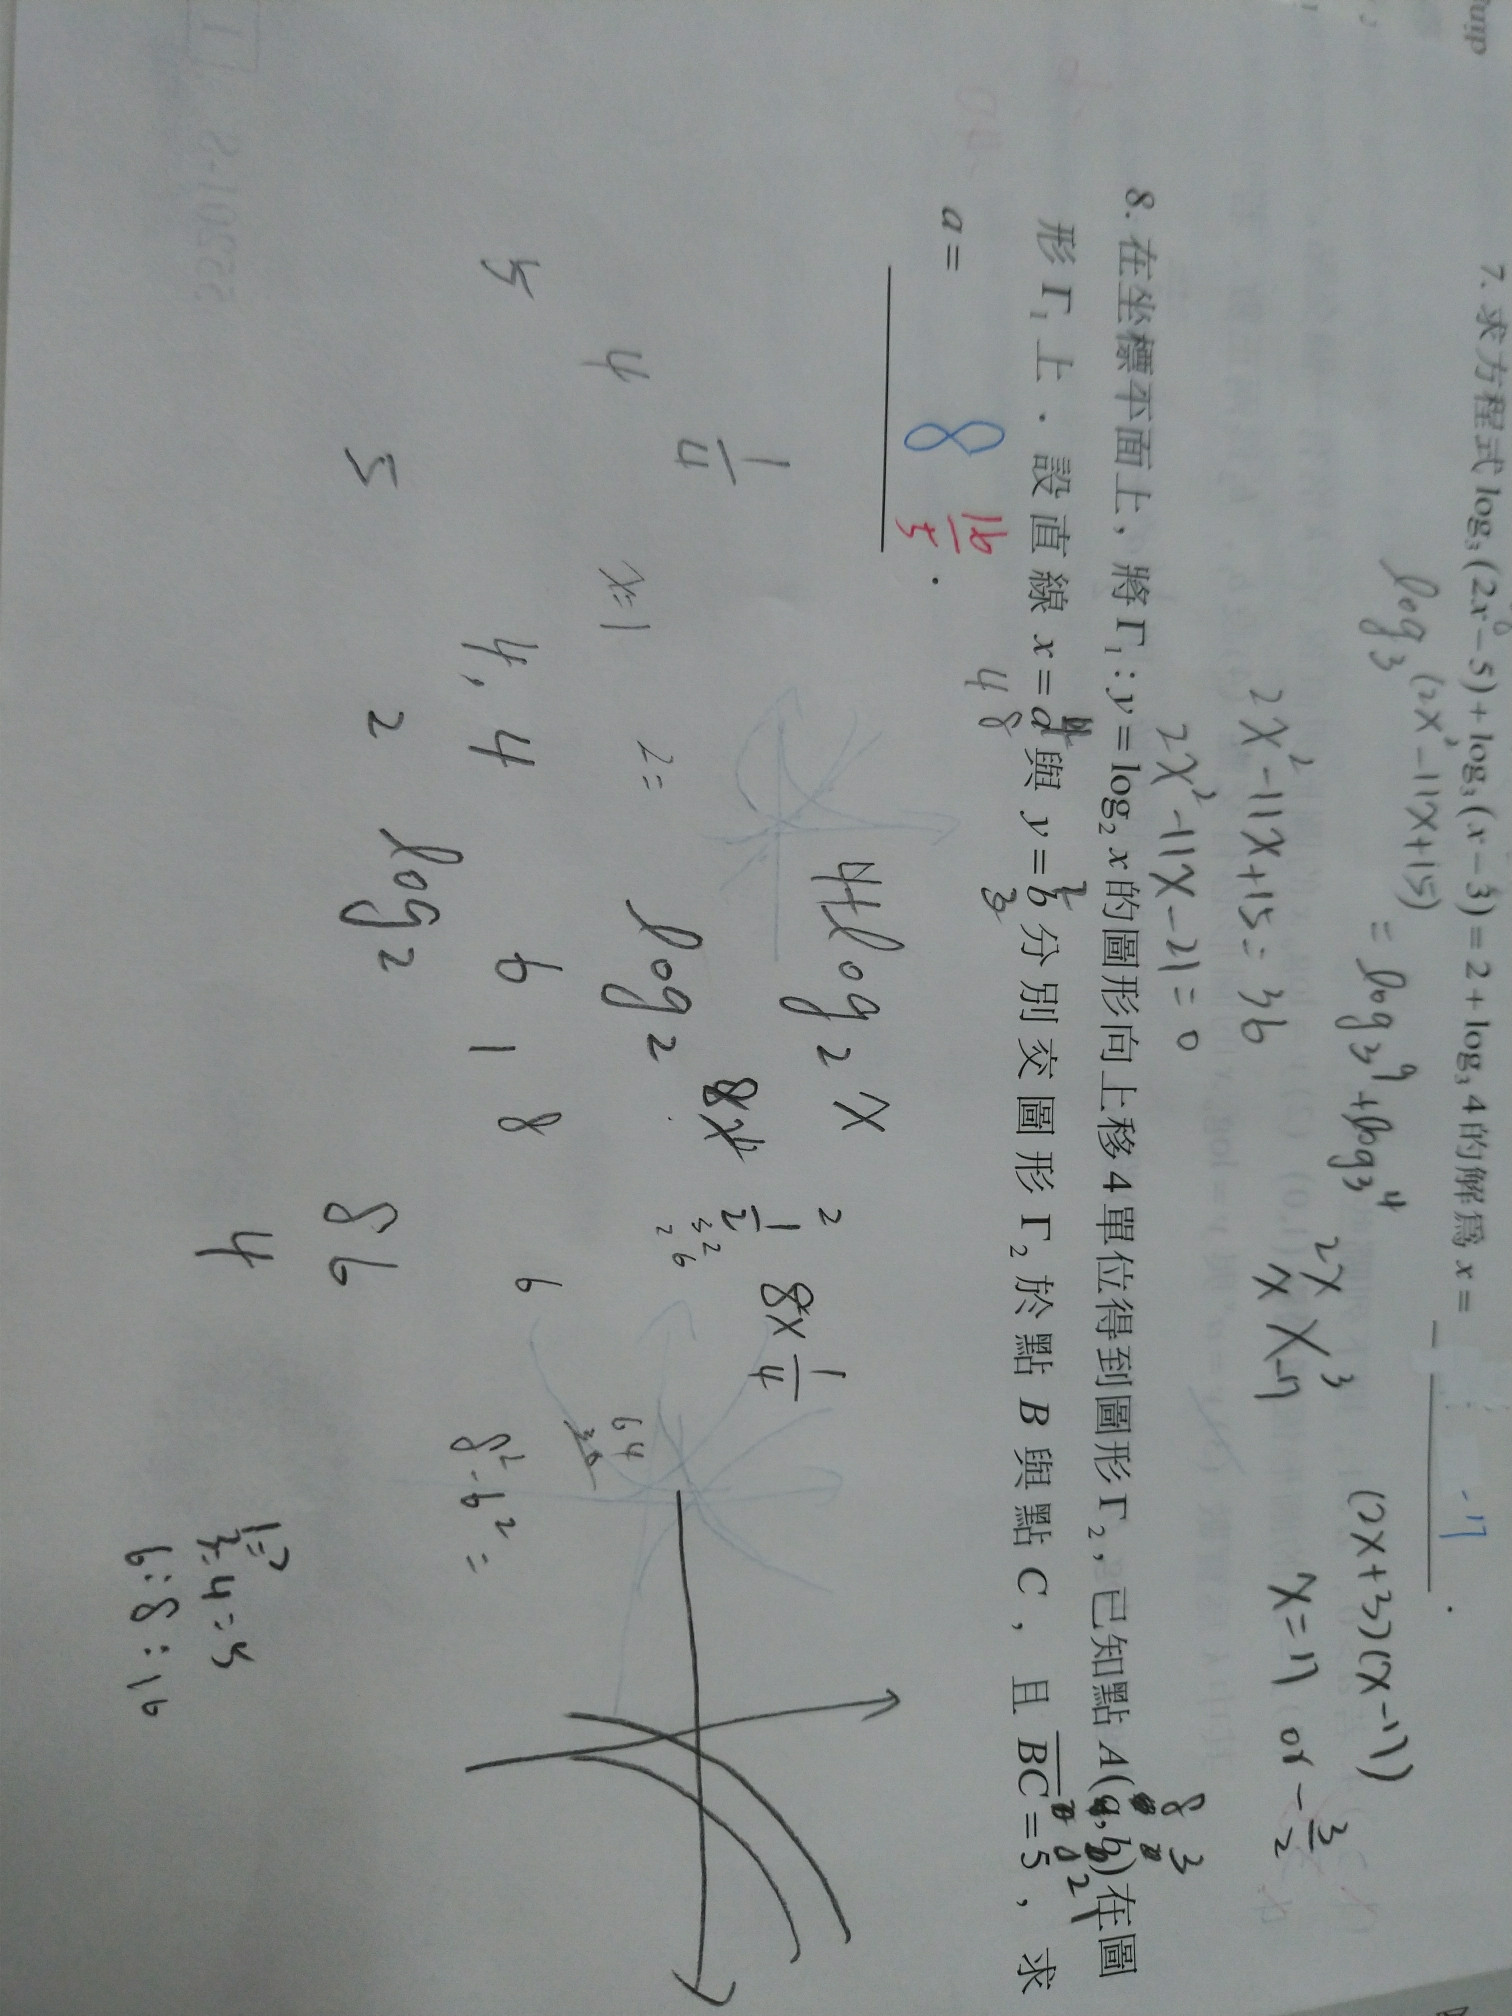 7. 求方程式 log₃(2x-5)+log₃(x-3)=2+log₃4 的解為 x=
-17
log₃(2x²-11x+15) = log₃9+log₃4
2x²-11x+15=36
2x²-11x-21=0
2x 3
x -7
(2x+3)(x-7)
x=7 or -3/2
8. 在坐標平面上，將 Γ₁：y=log₂x 的圖形向上移 4 單位得到圖形 Γ₂，已知點 A(a,b) 在圖
形 Γ₁ 上．設直線 x=a 與 y=b 分別交圖形 Γ₂ 於點 B 與點 C，且 BC=5，求
a= 8 16/5 .
4+log₂x
8x 1/4
1/4
4
5
x=1
2=
log₂
1/2
4, 4
6 1 8 6
64
8²-6²=
5
2 log₂
86
4
3=4=5
6:8:16